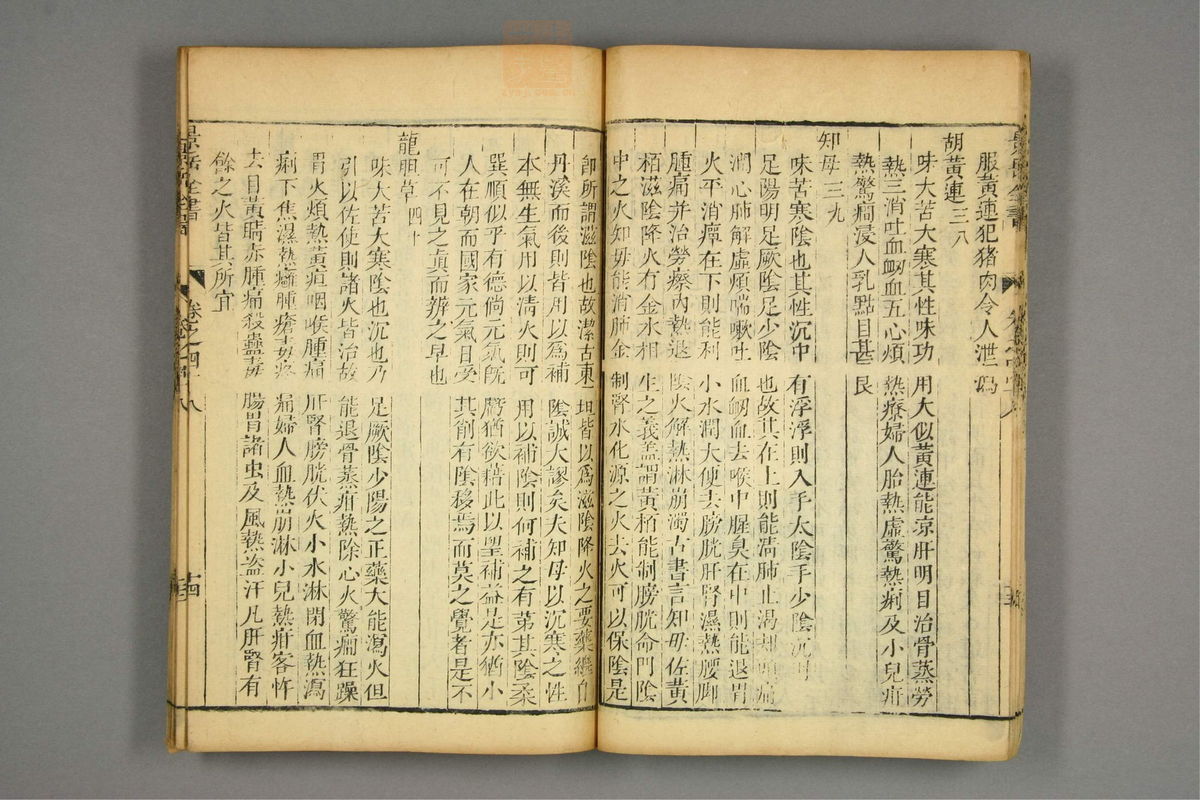 服黃連犯猪肉令人泄瀉
胡黃連三八
味大苦大寒其性味功用大似黃連能凉肝明目治骨蒸勞
熱三消吐血衂血五心煩熱療婦人胎熱虛驚熱痢及小兒疳
熱驚癎浸人乳點目甚良
知母三九
味苦寒陰也其性沉中有浮浮則入手太陰手少陰沉則
足陽明足厥陰足少陰也故其在上則能淸肺止渴却頭痛
潤心肺解虛煩喘嗽吐血衂血去喉中腥臭在中則能退胃
火平消癉在下則能利小水潤大便去膀胱肝腎濕熱腰脚
腫痛并治勞瘵內熱退陰火解熱淋崩濁古書言知母佐黃
栢滋陰降火有金水相生之義蓋謂黃栢能制膀胱命門陰
中之火知母能消肺金制腎水化源之火去火可以保陰是
卽所謂滋陰也故潔古東垣皆以爲滋陰降火之要藥繼自
丹溪而後則皆用以爲補陰誠大謬矣夫知母以沉寒之性
本無生氣用以淸火則可用以補陰則何補之有第其陰柔
巽順似乎有德倘元氣旣虧猶欲藉此以望補益是亦猶小
人在朝而國家元氣日受其削有陰移焉而莫之覺者是不
可不見之眞而辨之早也
龍胆草四十
味大苦大寒陰也沉也乃足厥陰少陽之正藥大能瀉火但
引以佐使則諸火皆治故能退骨蒸疳熱除心火驚癎狂躁
胃火煩熱黃疸咽喉腫痛肝腎膀胱伏火小水淋閉血熱瀉
痢下焦濕熱癰腫瘡毒疼痛婦人血熱崩淋小兒熱疳客忤
去目黃睛赤腫痛殺蠱毒腸胃諸虫及風熱盜汗凡肝腎有
餘之火皆其所宜
景岳全書
卷之四十八
十四